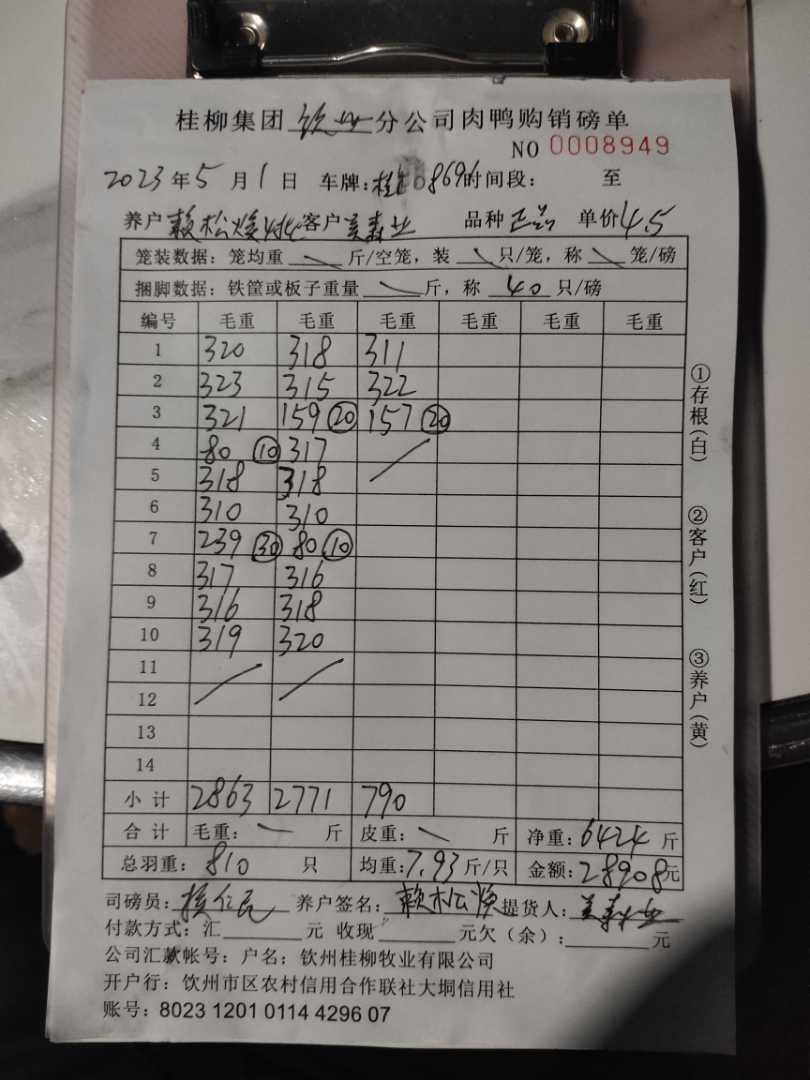 桂柳集团钦州分公司肉鸭购销磅单
NO 0008949
2023年5月1日 车牌:桂 08696时间段: 至
养户 赖松焕 客户 美森业 品种 正品 单价 4.5
笼装数据:笼均重 \ 斤/空笼,装 \ 只/笼,称 \ 笼/磅
捆脚数据:铁筐或板子重量 \ 斤,称 40 只/磅
编号 毛重 毛重 毛重 毛重 毛重 毛重
1 320 318 311
2 323 315 322
3 321 159 ⑳ 157 ⑳
4 80 ⑩ 317 /
5 318 318
6 310 310
7 239 ㉚ 80 ⑩
8 317 316
9 316 318
10 319 320
11 / /
12
13
14
小计 2863 2771 790
合计 毛重: \ 斤 皮重: \ 斤 净重:6424斤
总羽重:810 只 均重:7.93斤/只 金额:28908元
司磅员: 养户签名:赖松焕 提货人:美森业
付款方式:汇 元 收现 元欠(余): 元
公司汇款帐号:户名:钦州桂柳牧业有限公司
开户行:钦州市区农村信用合作联社大垌信用社
账号:8023 1201 0114 4296 07
①存根(白)
②客户(红)
③养户(黄)